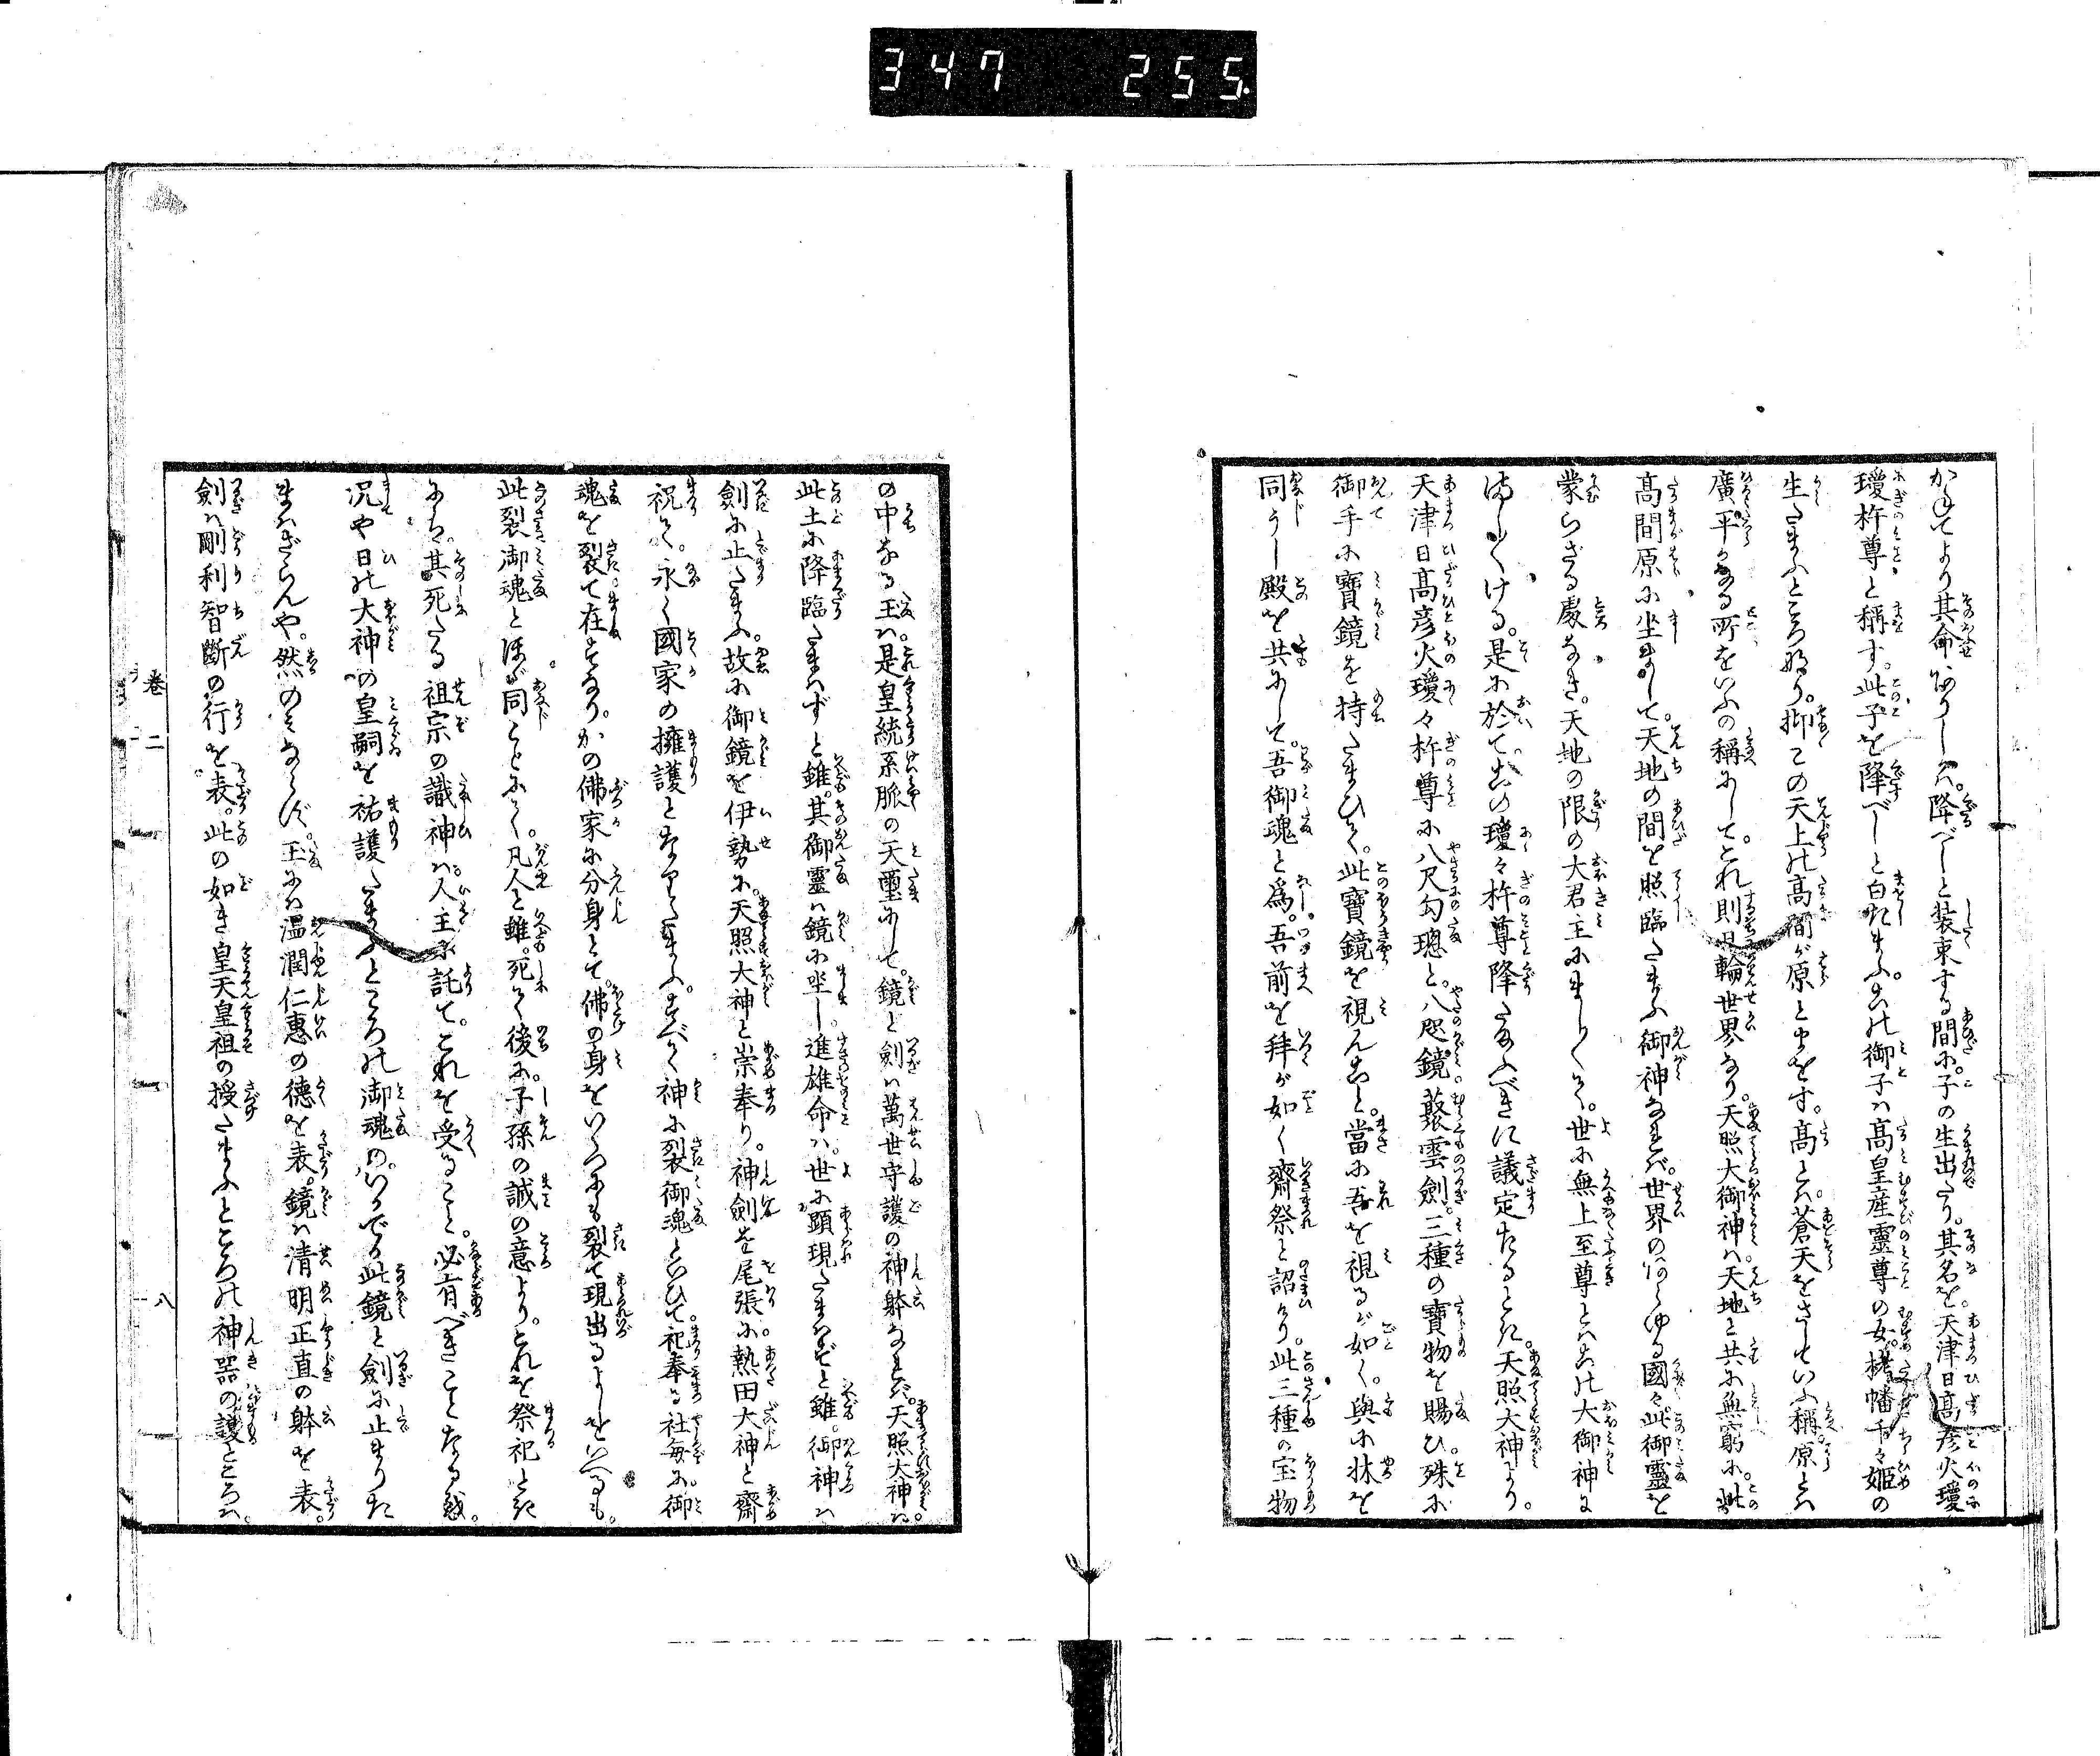 347 255.
かねてより其命ありしかば。降べしと装束する間に。子の生出たり。其名を。天津日高彦火瓊
瓊杵尊と稱す。此子を降べしと白たまふ。此御子は高皇産靈尊の女。栲幡千々姫の
生たまふところなり。抑この天上の高間が原とまをす。高とは蒼天をさしていふ稱。原とは
廣平かなる所をいふの稱にして。これ則日輪世界なり。天照大御神は。天地と共に無窮に。此
高間原に坐まして。天地の間を照臨たまふ御神なれば。世界のあらゆる國々。此御靈を
蒙らざる處なき。天地の限の大君主にましまして。世に無上至尊とは此大御神に
ましましける。是に於て。此瓊々杵尊降たまふべきに議定たるとき。天照大神より。
天津日高彦火瓊々杵尊に八尺勾璁と。八咫鏡。叢雲劍。三種の寶物を賜ひ。殊に
御手に寶鏡を持たまひて。此寶鏡を視んこと。當に吾を視るが如く。與に牀を
同うし殿を共にして。吾御魂と爲。吾前を拜が如く齋祭と詔けり。此三種の宝物
の中なる玉は。是皇統系脈の天璽にして。鏡と劍は萬世守護の神躰なれば。天照大神は。
此土に降臨たまはずと雖。其御靈は鏡に坐し。進雄命は。世に顕現たまはずと雖。御神は
劍に止たまふ。故に御鏡を伊勢に。天照大神と崇奉り。神劍を尾張に。熱田大神と齋
祝て。永く國家の擁護となりたまふ。すべて神に裂御魂といひて。祀奉る社毎に。御
魂を裂て在すなり。かの佛家に分身とて。佛の身をいくつにも裂て現出るよしをいへるも。
此裂御魂とほゞ同ことにて。凡人と雖。死て後に。子孫の誠の意より。これを祭祀とき
にも。其死たる祖宗の識神は。人主に託て。これを受ること。必有べきことなる哉。
况や日の大神の皇嗣を祐護たまふところの御魂の。いかでか此鏡と劍に止まりた
まはざらんや。然のみならず。玉には温潤仁惠の德を表。鏡は清明正直の躰を表。
劍は剛利智斷の行を表。此の如き皇天皇祖の授たまふところの神器の護ところは。
卷二
八